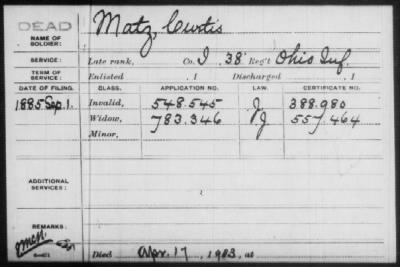 DEAD
NAME OF SOLDIER: Matz, Curtis
SERVICE: Late rank, Co. I, 38 Reg't Ohio Inf.
TERM OF SERVICE: Enlisted , 1 Discharged , 1
DATE OF FILING. CLASS. APPLICATION NO. LAW. CERTIFICATE NO.
1885 Sep. 1. Invalid, 548.545 J 388.980
Widow, 783.346 J. 557.464
Minor,
ADDITIONAL SERVICES:
REMARKS:
Died Apr. 17, 1903, at